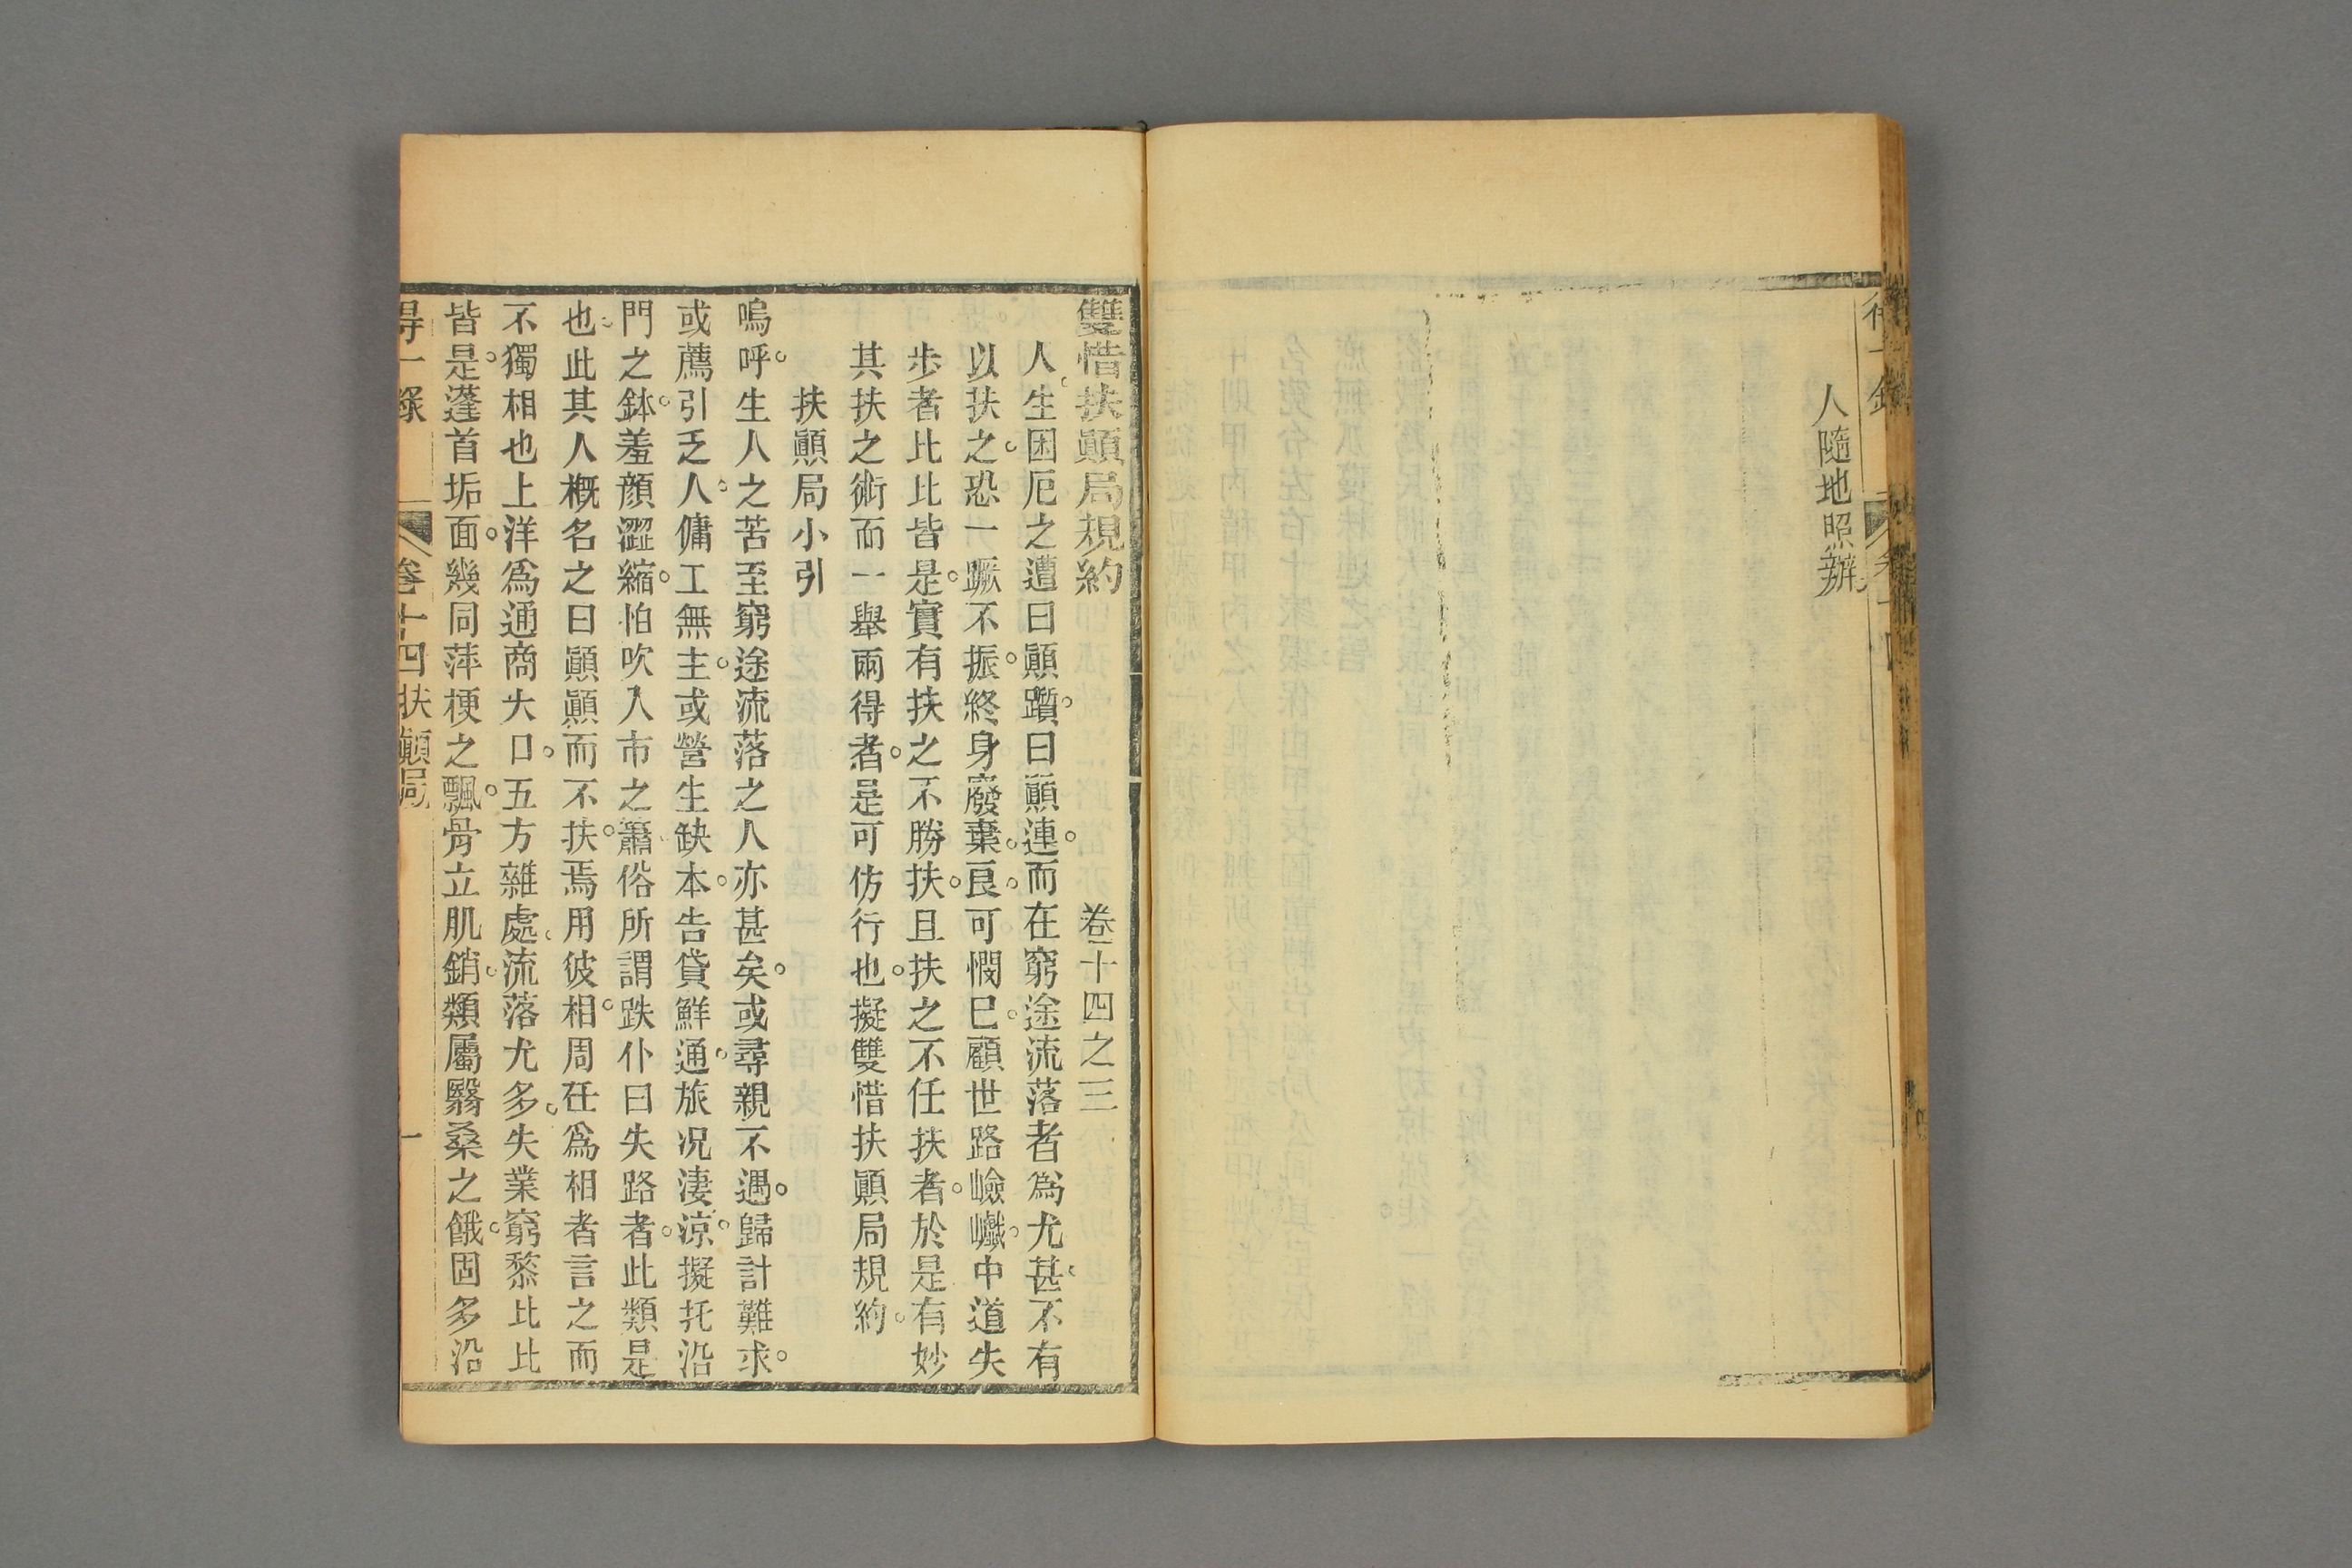 人隨地照辦
雙惜扶顚局規約 卷十四之三
人生困厄之遭曰顚躓曰顚連而在窮途流落者爲尤甚不有
以扶之恐一蹶不振終身廢棄良可憫已顧世路嶮巇中道失
步者比比皆是實有扶之不勝扶且扶之不任扶者於是有妙
其扶之術而一舉兩得者是可仿行也擬雙惜扶顚局規約
扶顚局小引
嗚呼生人之苦至窮途流落之人亦甚矣或尋親不遇歸計難求
或薦引乏人傭工無主或營生缺本告貸鮮通旅况淒凉擬托沿
門之鉢羞顏澀縮怕吹入市之簫俗所謂跌仆曰失路者此類是
也此其人槪名之曰顚顚而不扶焉用彼相周在爲相者言之而
不獨相也上洋爲通商大口五方雜處流落尤多失業窮黎比比
皆是蓬首垢面幾同萍梗之飄骨立肌銷類屬翳桑之餓固多沿
得一錄 卷十四扶顚局 一